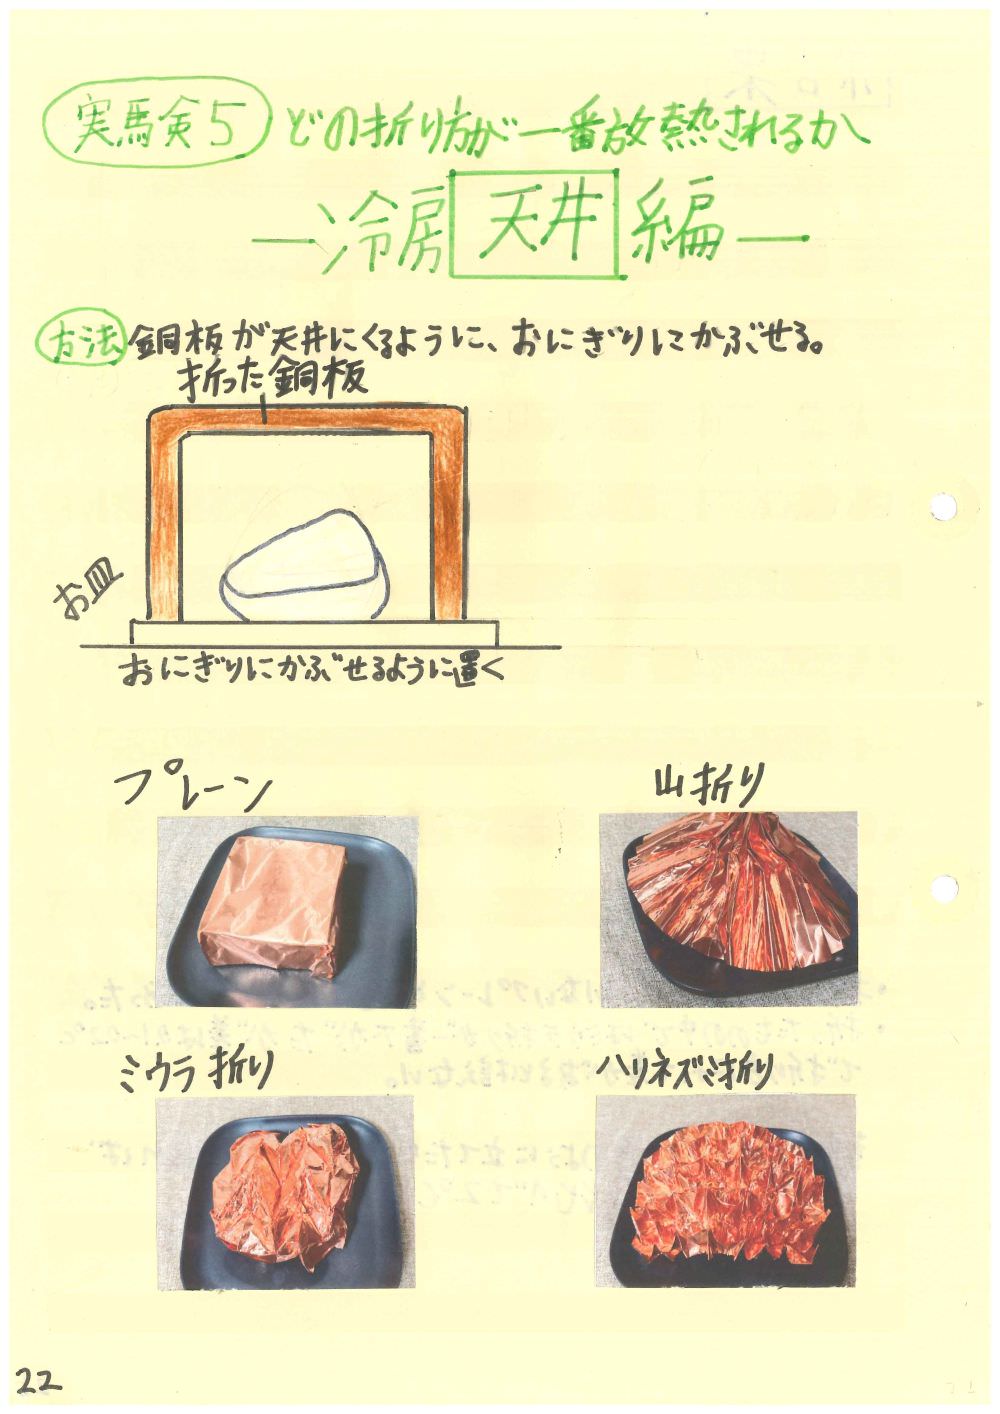 実験5 どの折り方が一番放熱されるか
―冷房天井編―
方法 銅板が天井にくるように、おにぎりにかぶせる。
折った銅板
お皿
おにぎりにかぶせるように置く
プレーン
山折り
ミウラ折り
ハリネズミ折り
22